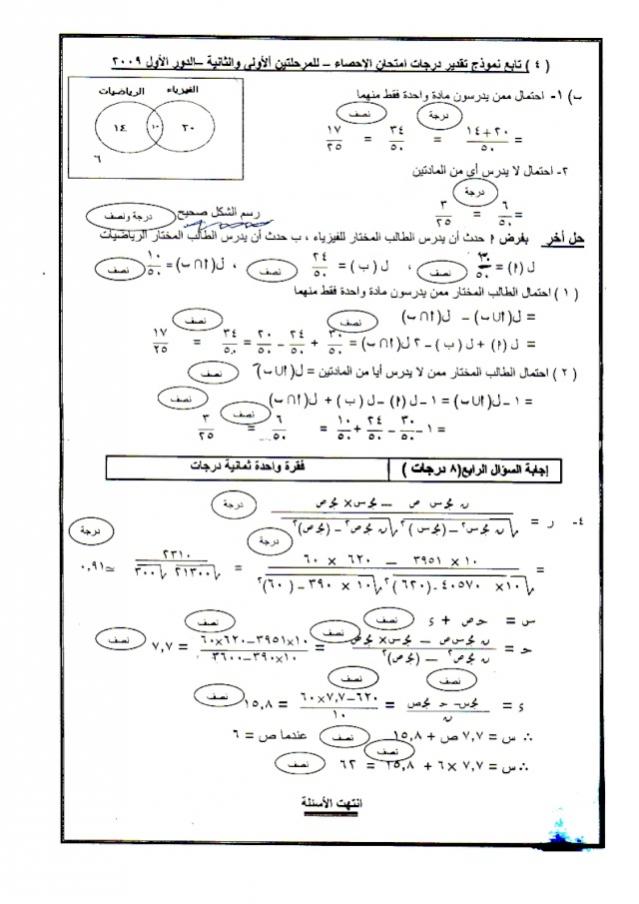 ( ٤ ) تابع نموذج تقدير درجات امتحان الإحصاء – للمرحلتين الأولى والثانية –الدور الأول ٢٠٠٩
الفيزياء الرياضيات
٢٠ ١٠ ١٤
٦
ب) ١- احتمال ممن يدرسون مادة واحدة فقط منهما
درجة نصف
= ١٤+٢٠/٥٠ = ٣٤/٥٠ = ١٧/٢٥
٢- احتمال لا يدرس أي من المادتين
درجة
= ٦/٥٠ = ٣/٢٥
رسم الشكل صحيح درجة ونصف
حل أخر بفرض أ حدث أن يدرس الطالب المختار للفيزياء ، ب حدث أن يدرس الطالب المختار الرياضيات
ل (أ) = ٣٠/٥٠ نصف ، ل ( ب ) = ٢٤/٥٠ نصف ، ل(أ∩ب) = ١٠/٥٠ نصف
( ١ ) احتمال الطالب المختار ممن يدرسون مادة واحدة فقط منهما
= ل(أ∪ب) – ل(أ∩ب) نصف نصف
= ل (أ) + ل ( ب ) – ٢ ل(أ∩ب) = ٣٠/٥٠ + ٢٤/٥٠ – ٢٠/٥٠ = ٣٤/٥٠ = ١٧/٢٥
( ٢ ) احتمال الطالب المختار ممن لا يدرس أيا من المادتين = ل(أ∪ب)َ نصف
= ١ – ل(أ∪ب) = ١ – ل (أ) – ل ( ب ) + ل(أ∩ب) نصف
= ١ – ٣٠/٥٠ – ٢٤/٥٠ + ١٠/٥٠ = ٦/٥٠ نصف = ٣/٢٥
إجابة السؤال الرابع(٨ درجات ) فقرة واحدة ثمانية درجات
٤- ر = ن مجـ س ص – مجـ س× مجـ ص / √ن مجـ س٢ – (مجـ س)٢ √ن مجـ ص٢ – (مجـ ص)٢ درجة
= ١٠× ٣٩٥١ – ٦٢٠ × ٦٠ / √١٠× ٤٠٥٧٠ –(٦٢٠)٢ √١٠ × ٣٩٠ – (٦٠)٢ درجة = ٢٣١٠ / √٢١٣٠٠ √٣٠٠ ≃ ٠,٩١ درجة
س = حـ ص + ء نصف
حـ = ن مجـ س ص – مجـ س× مجـ ص / ن مجـ ص٢ – (مجـ ص)٢ نصف = ١٠×٣٩٥١–٦٢٠×٦٠ / ١٠×٣٩٠–٣٦٠٠ نصف = ٧,٧ نصف
ء = مجـ س– حـ مجـ ص / ن نصف = ٦٢٠–٧,٧×٦٠ / ١٠ نصف = ١٥,٨ نصف
∴ س = ٧,٧ ص + ١٥,٨ نصف عندما ص = ٦
∴ س = ٧,٧ × ٦ + ١٥,٨ نصف = ٦٢ نصف
انتهت الأسئلة